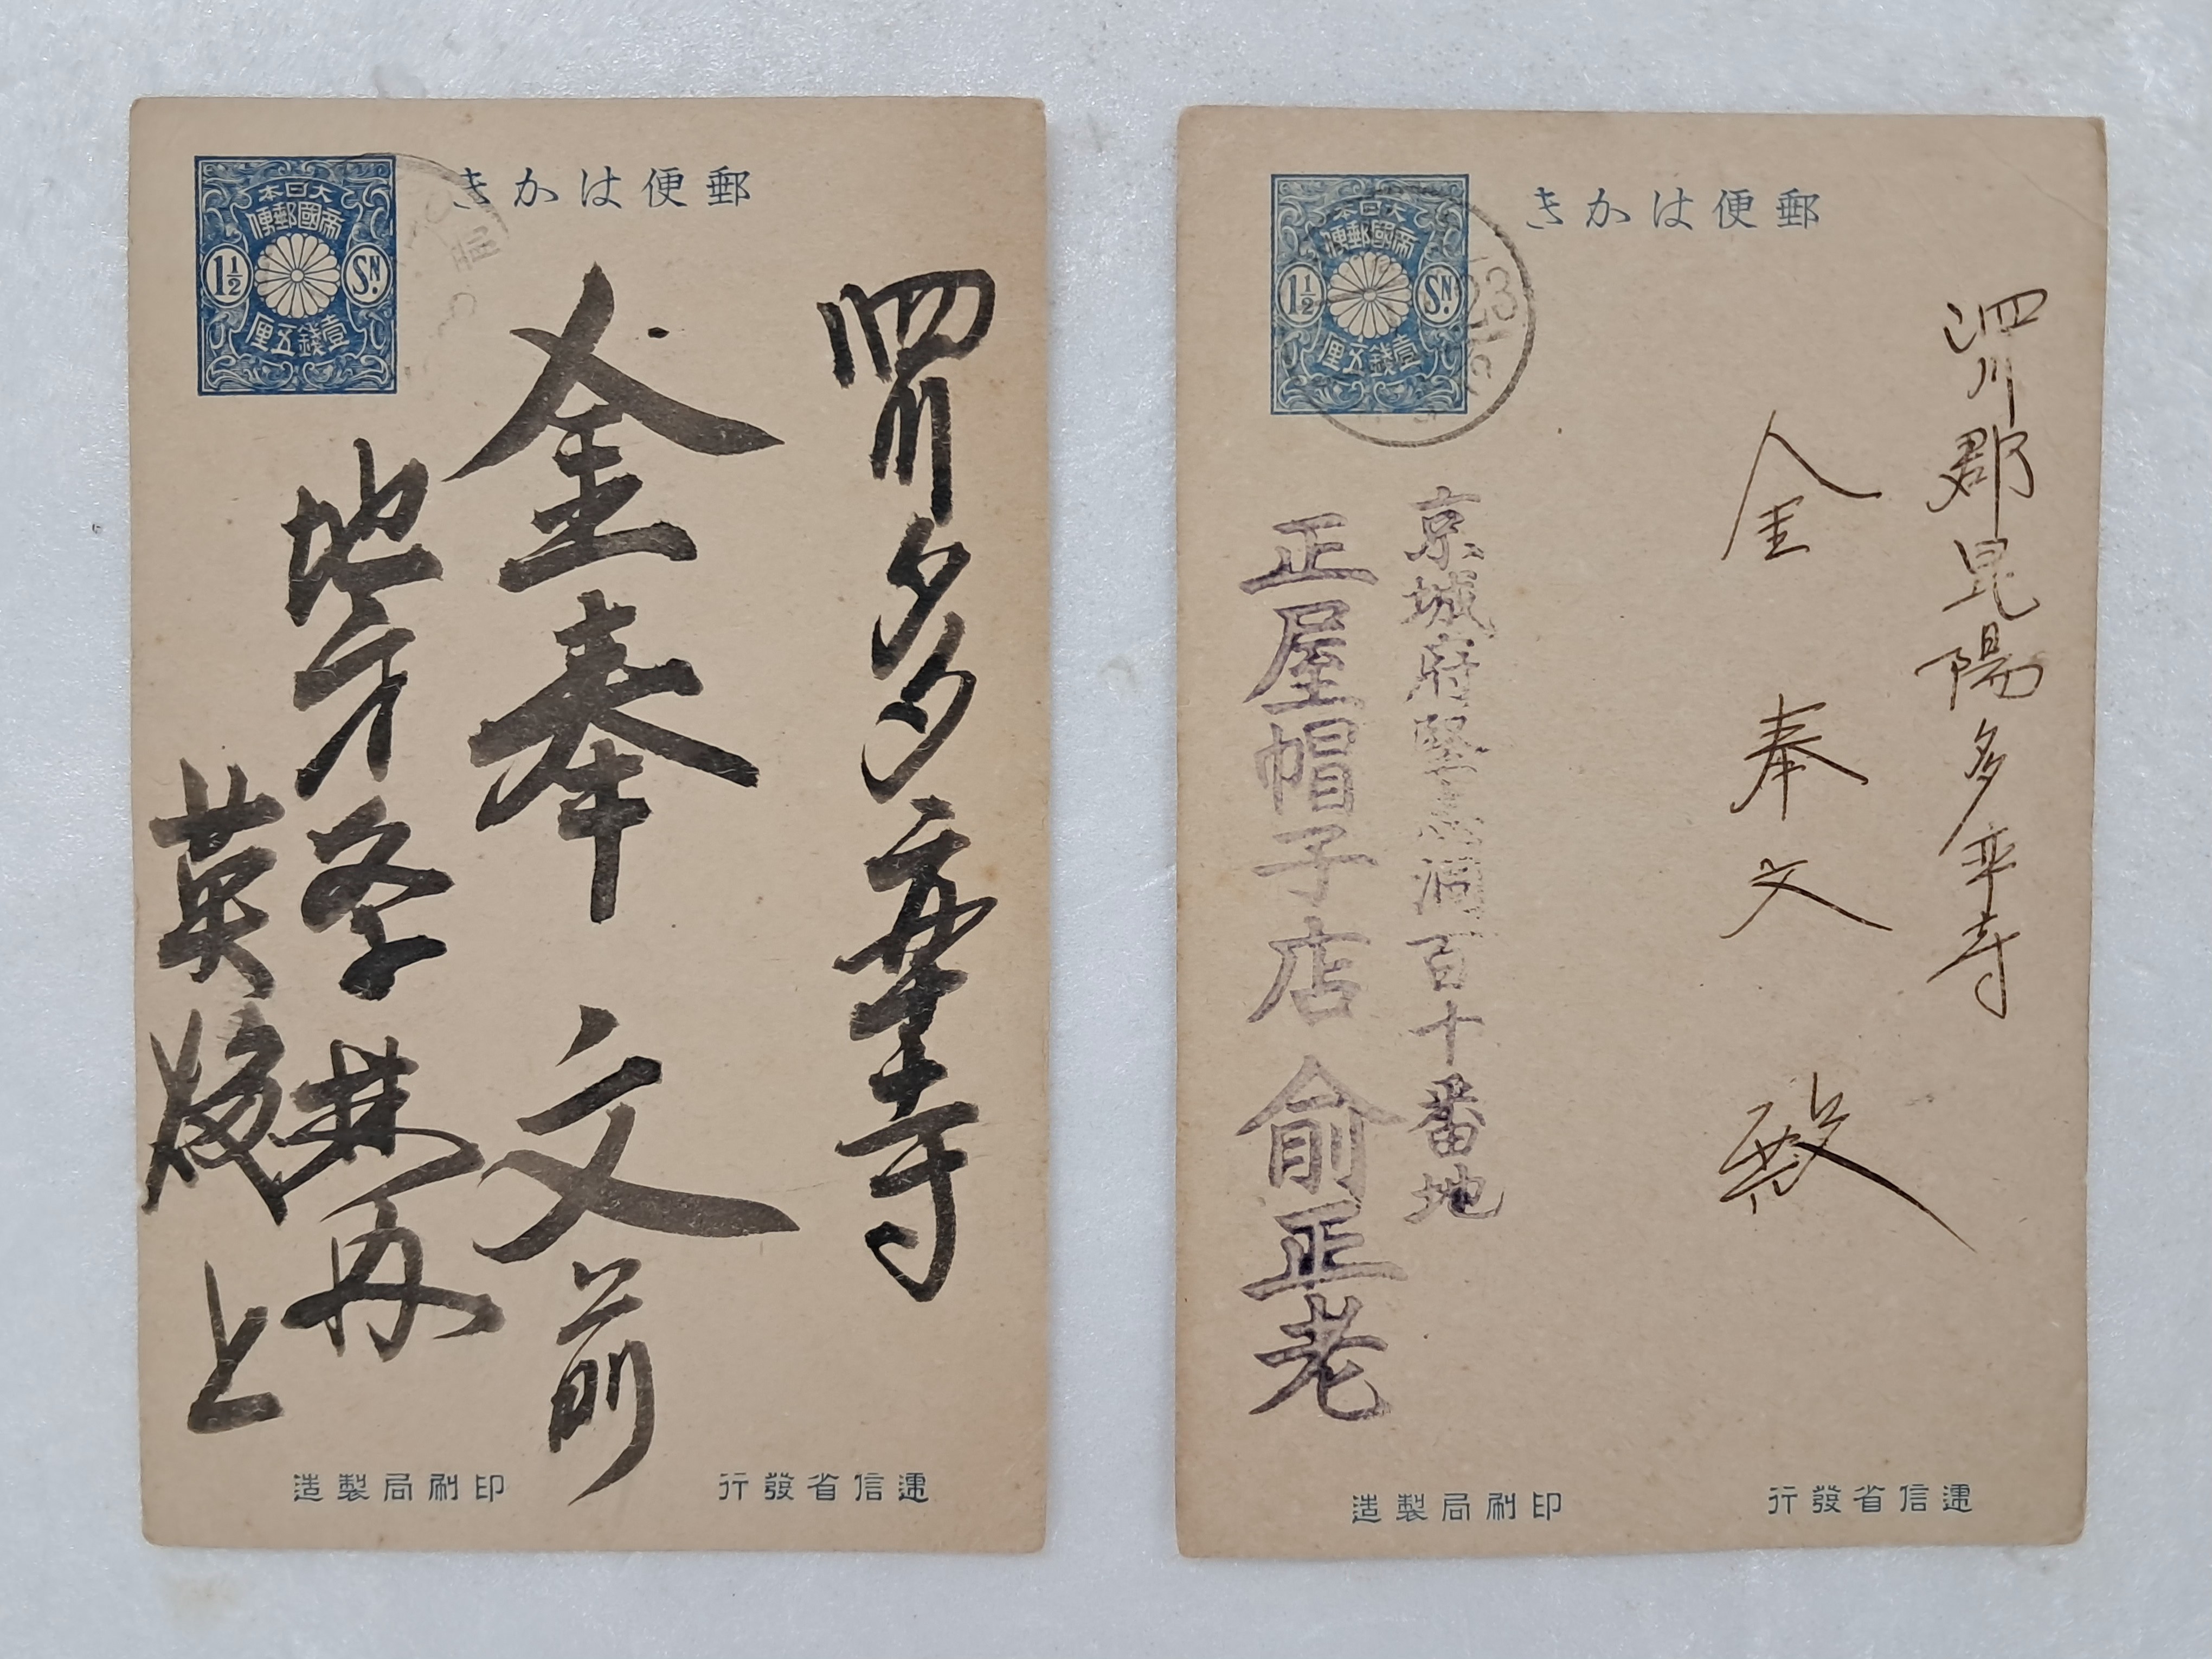 郵便はかき
大日本
帝國郵便
1½ SN.
壹錢五厘
泗川多率寺
金奉文前
地方学林再
英
上
遞信省發行
印刷局製造
郵便はかき
大日本
帝國郵便
1½ SN.
壹錢五厘
23
泗川郡昆陽多率寺
金奉文殿
京城府堅志洞百十番地
正屋帽子店 俞正老
遞信省發行
印刷局製造